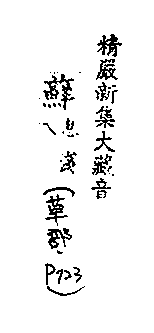 精嚴新集大藏音
蘇 (草部 P723)